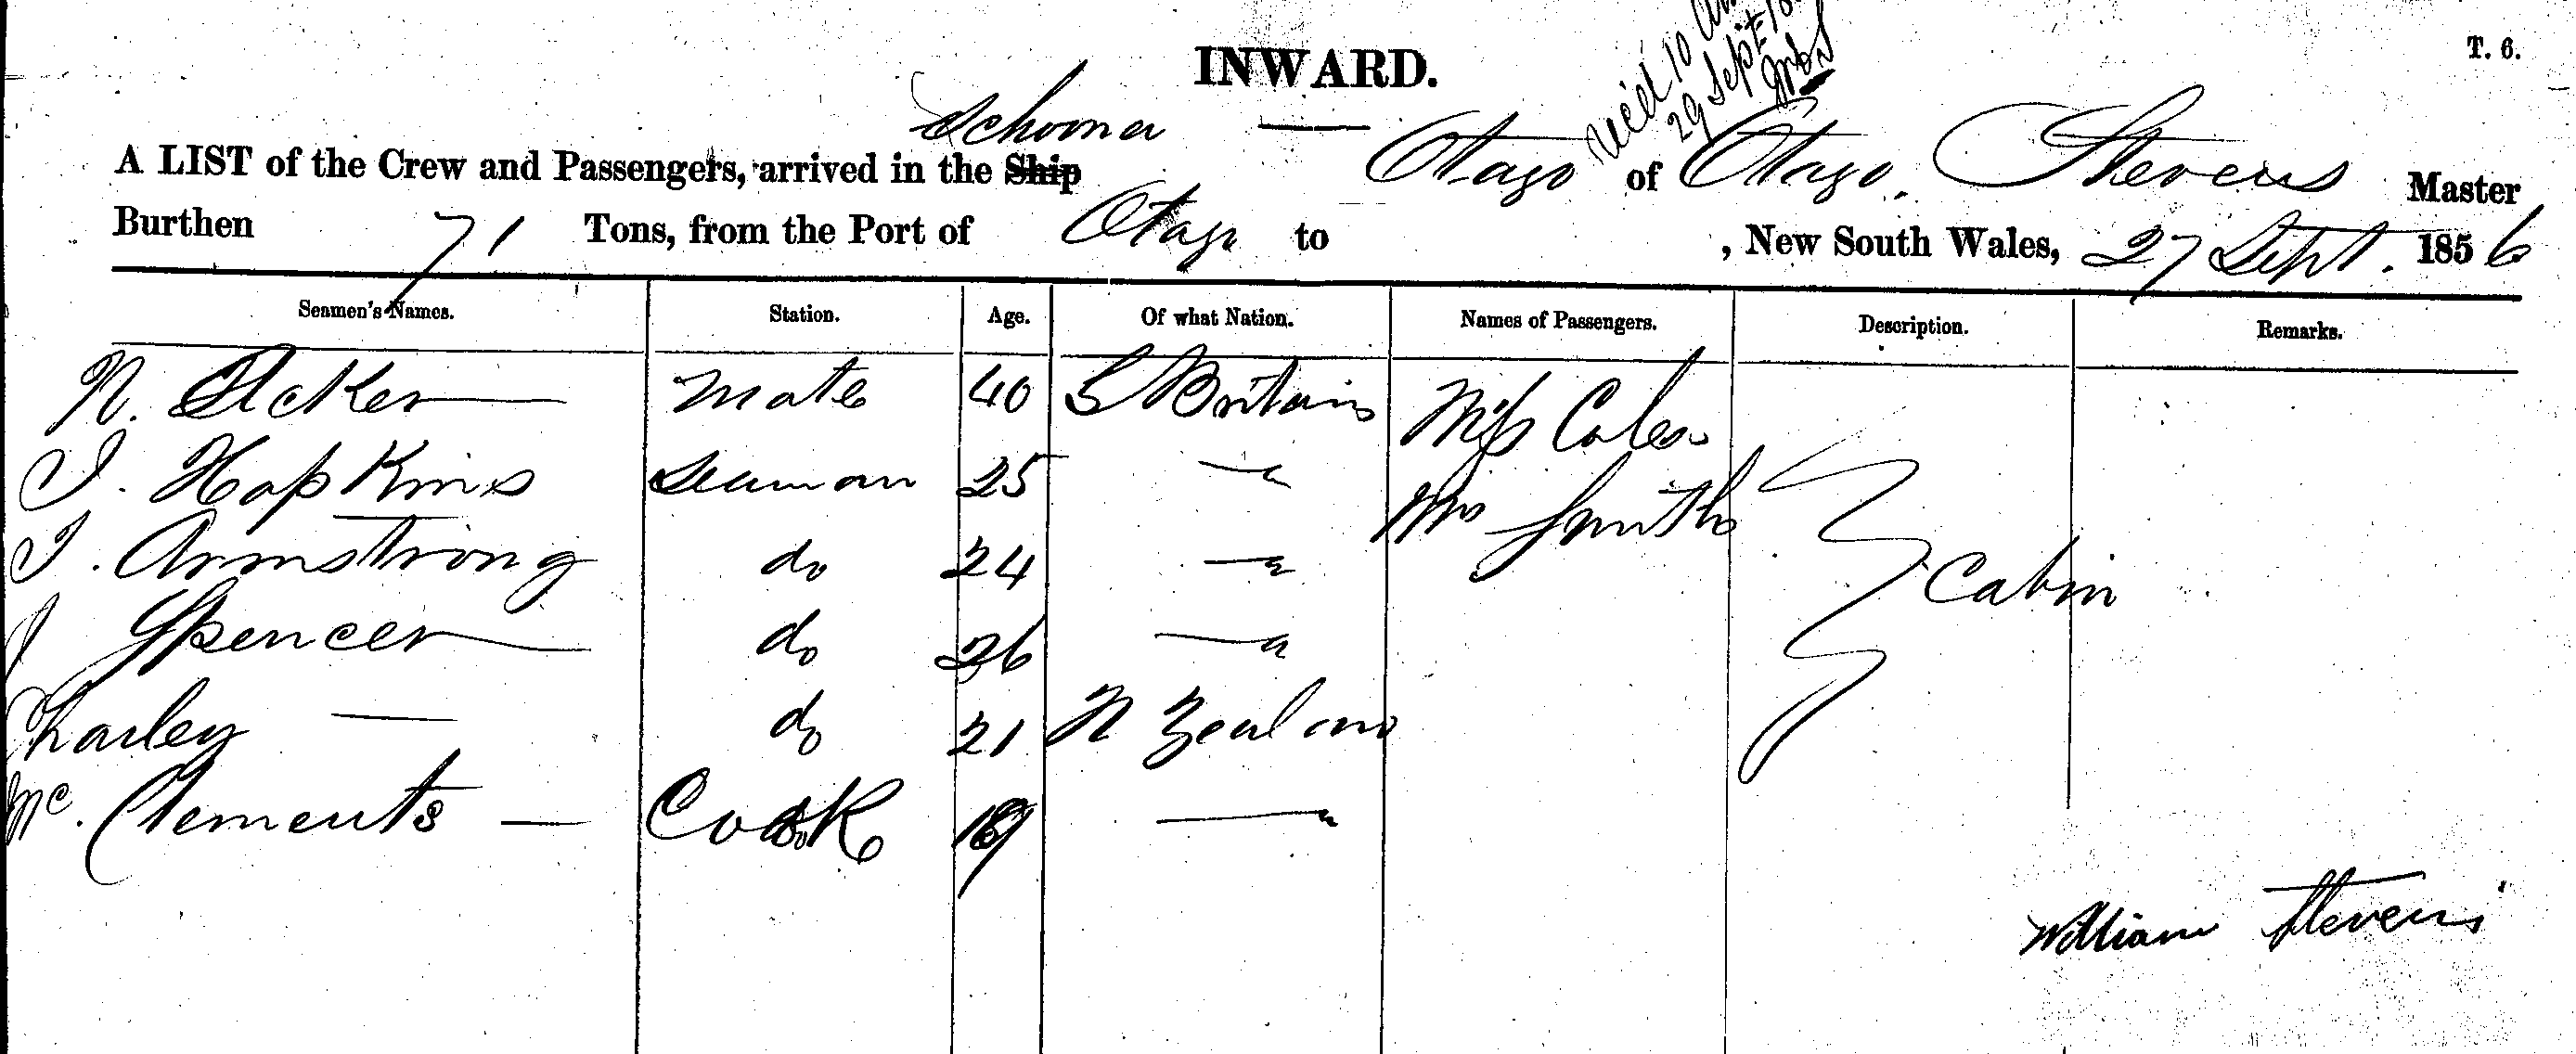 INWARD.
T. 6.
Rec'd 10
29 Sept
Schooner
A LIST of the Crew and Passengers, arrived in the Ship Otago of Otago. Stevens Master
Burthen 71 Tons, from the Port of Otago to , New South Wales, 27 Sept. 1856
Seamen's Names. Station. Age. Of what Nation. Names of Passengers. Description. Remarks.
N. Mate 40 Britain Miss Coles
J. Hopkins Seaman 25 — " Mrs Smith
J. Armstrong do 24 — " Cabin
J Spencer do 26 — "
Charley — do 21 N Zealand
Mc. Clements — Cook 19 — "
William Stevens